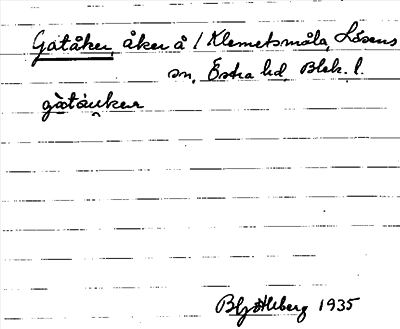 Gatåker, åker å 1 Klemetsmåla, Lösens
sn, Östra hd, Blek. l.
gàtáuker
1935